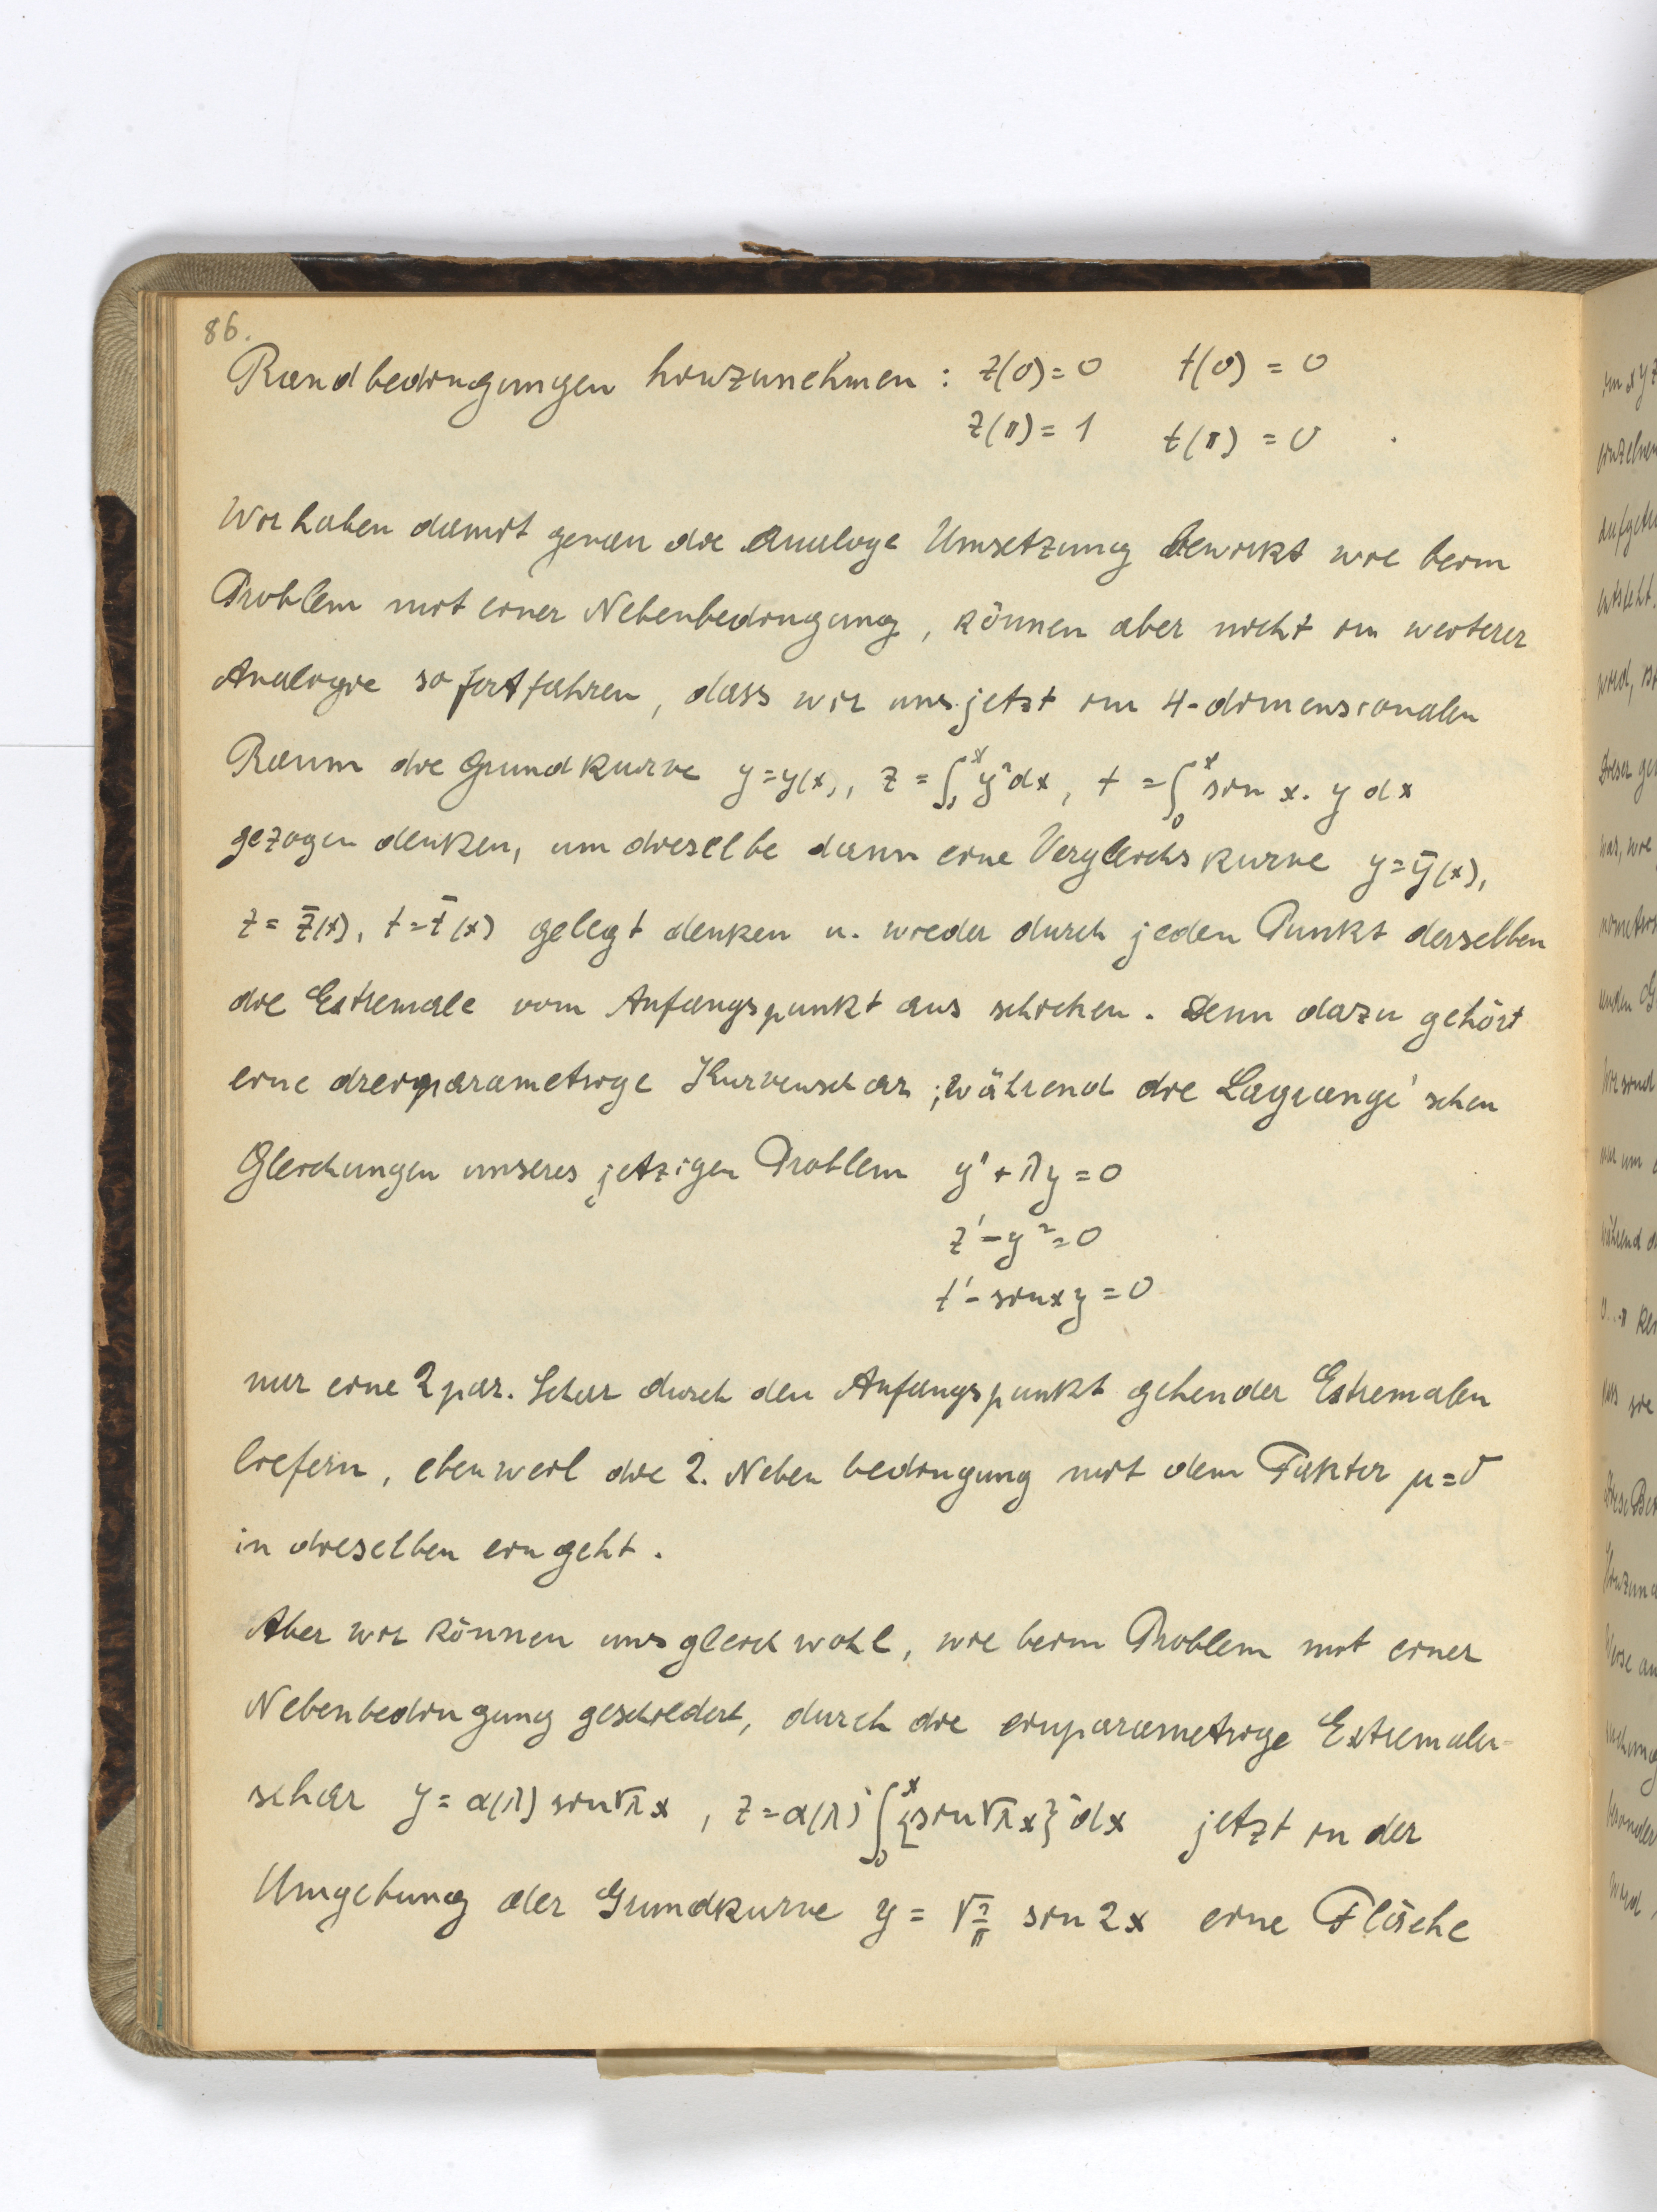 86.
Randbedingungen hinzunehmen : z(0) = 0 t(0) = 0
z(π) = 1 t(π) = 0 .
Wir haben damit genau die analoge Umsetzung bewirkt wie beim
Problem mit einer Nebenbedingung, können aber nicht in weiterer
Analogie so fortfahren, dass wir uns jetzt im 4-dimensionalen
Raum die Grundkurve y = y(x), z = ∫₀ˣ y² dx, t = ∫₀ˣ sin x. y dx
gezogen denken, um dieselbe dann eine Vergleichskurve y = ȳ(x),
z = z̄(x), t = t̄(x) gelegt denken u. wieder durch jeden Punkt derselben
die Extremale vom Anfangspunkt aus schicken. Denn dazu gehört
eine dreiparametrige Kurvenschar ; während die Lagrange'schen
Gleichungen unseres jetzigen Problem y'' + λy = 0
z' - y² = 0
t' - sin x y = 0
nur eine 2 par. Schar durch den Anfangspunkt gehender Extremalen
liefern, eben weil die 2. Nebenbedingung mit dem Faktor μ = 0
in dieselben eingeht.
Aber wir können uns gleichwohl, wie beim Problem mit einer
Nebenbedingung geschildert, durch die einparametrige Extremalen-
schar y = α(λ) sin √λ x , z = α(λ)² ∫₀ˣ {sin √λ x}² dx jetzt in der
Umgebung der Grundkurve y = √2/π sin 2x eine Fläche